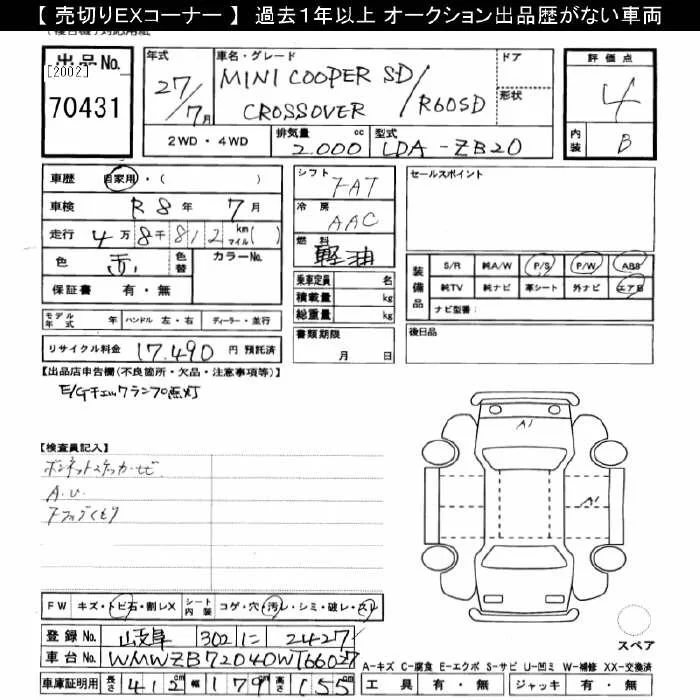 【 売切りEXコーナー 】 過去1年以上 オークション出品歴がない車両
出品No. [2002] 70431
年式 27/7月
車名・グレード MINI COOPER SD/ CROSSOVER /R60SD
ドア
形状
評価点 4
内装 B
2WD・4WD
排気量 2.000 cc
型式 LDA-ZB20
車歴 自家用・( )
車検 R8年 7月
走行 4万8千812 km マイル( )
色 赤 色替 カラーNo.
保証書 有・無
シフト FAT
冷房 AAC
燃料 軽油
乗車定員 名
積載量 kg
総重量 kg
書類期限 月 日
セールスポイント
装備品 S/R 純A/W P/S P/W ABS
純TV 純ナビ 革シート 外ナビ エアB
ナビ型番:
後日品
モデル年式 年 ハンドル 左・右 ディーラー・並行
リサイクル料金 17.490 円 預託済
【出品店申告欄(不良箇所・欠品・注意事項等)】
E/Gチェックランプ点灯
【検査員記入】
ボンネットステッカーヒビ
A.U.
Fフッグくもり
A1
A1
FW キズ・トビ石・割レX シート内装 コゲ・穴・汚レ・シミ・破レ・スレ
登録No. 岐阜 302 に 2427
車台No. WMWZB72040WT66027
車庫証明用 長さ 412cm 幅 179cm 高さ 155cm
スペア
A-キズ C-腐食 E-エクボ S-サビ U-凹ミ W-補修 XX-交換済
工具 有・無 ジャッキ 有・無